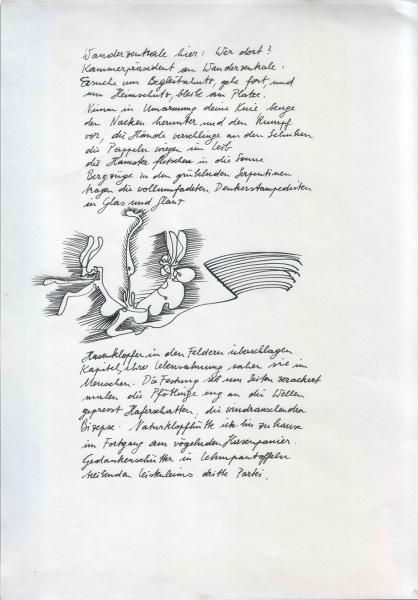 Wanderzentrale hier: Wer dort?
Kammerpräsident an Wanderzentrale:
Ersuche um Begleitschutz, gehe fort, und
um Heimschutz, bleibe am Platze.
Nimm in Umarmung deine Knie beuge
den Nacken herunter und den Rumpf
vor, die Hände verschlinge an den Schuhen
die Pappeln wiegen im Leib
die Hamster fletschen in die Sonne
Bergzüge in den grübelnden Serpentinen
tragen die Denkerstampedisten
in Glas und Glanz
Hasenklopfer in den Feldern überschlagen
Kapitel, ihre Lebensatmung sahen sie im
Menschen. Die Festung soll um Seiten
malen die Pfötlinge eng an die Wellen
gepresst Haferschatten, die
Bizepse. ich bin zuhause
im Fortgang am vögelnden Hasenpanier.
Gedankenschütter in Lehmpantoffeln
treibenden dritte Partei.